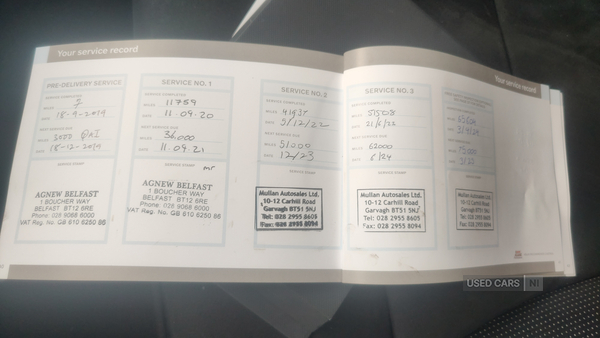 Your service record
Your service record
PRE-DELIVERY SERVICE
18-9-2019
NEXT SERVICE DUE
18-12-2019
SERVICE STAMP
AGNEW BELFAST
1 BOUCHER WAY
BELFAST BT12 6RE
Phone: 028 9068 6000
VAT Reg. No. GB 610 6250 86
SERVICE NO. 1
SERVICE COMPLETED
MILES 11759
DATE 11.09.20
NEXT SERVICE DUE
MILES 36,000
DATE 11.09.21
SERVICE STAMP
AGNEW BELFAST
1 BOUCHER WAY
BELFAST BT12 6RE
Phone: 028 9068 6000
VAT Reg. No. GB 610 6250 86
SERVICE NO. 2
SERVICE COMPLETED
DATE 5/12/22
NEXT SERVICE DUE
MILES 51000
DATE 12/23
SERVICE STAMP
Mullan Autosales Ltd.
10-12 Carhill Road
Garvagh BT51 5HJ
Tel: 028 2955 8605
Fax: 028 2955 8094
SERVICE NO. 3
SERVICE COMPLETED
MILES 51508
NEXT SERVICE DUE
MILES 62000
DATE 6/24
SERVICE STAMP
Mullan Autosales Ltd.
10-12 Carhill Road
Garvagh BT51 5HJ
Tel: 028 2955 8605
Fax: 028 2955 8094
Mullan Autosales Ltd.
10-12 Carhill Road
Garvagh BT51 5HJ
Tel: 028 2955 8605
Fax: 028 2955 8094
USED CARS NI